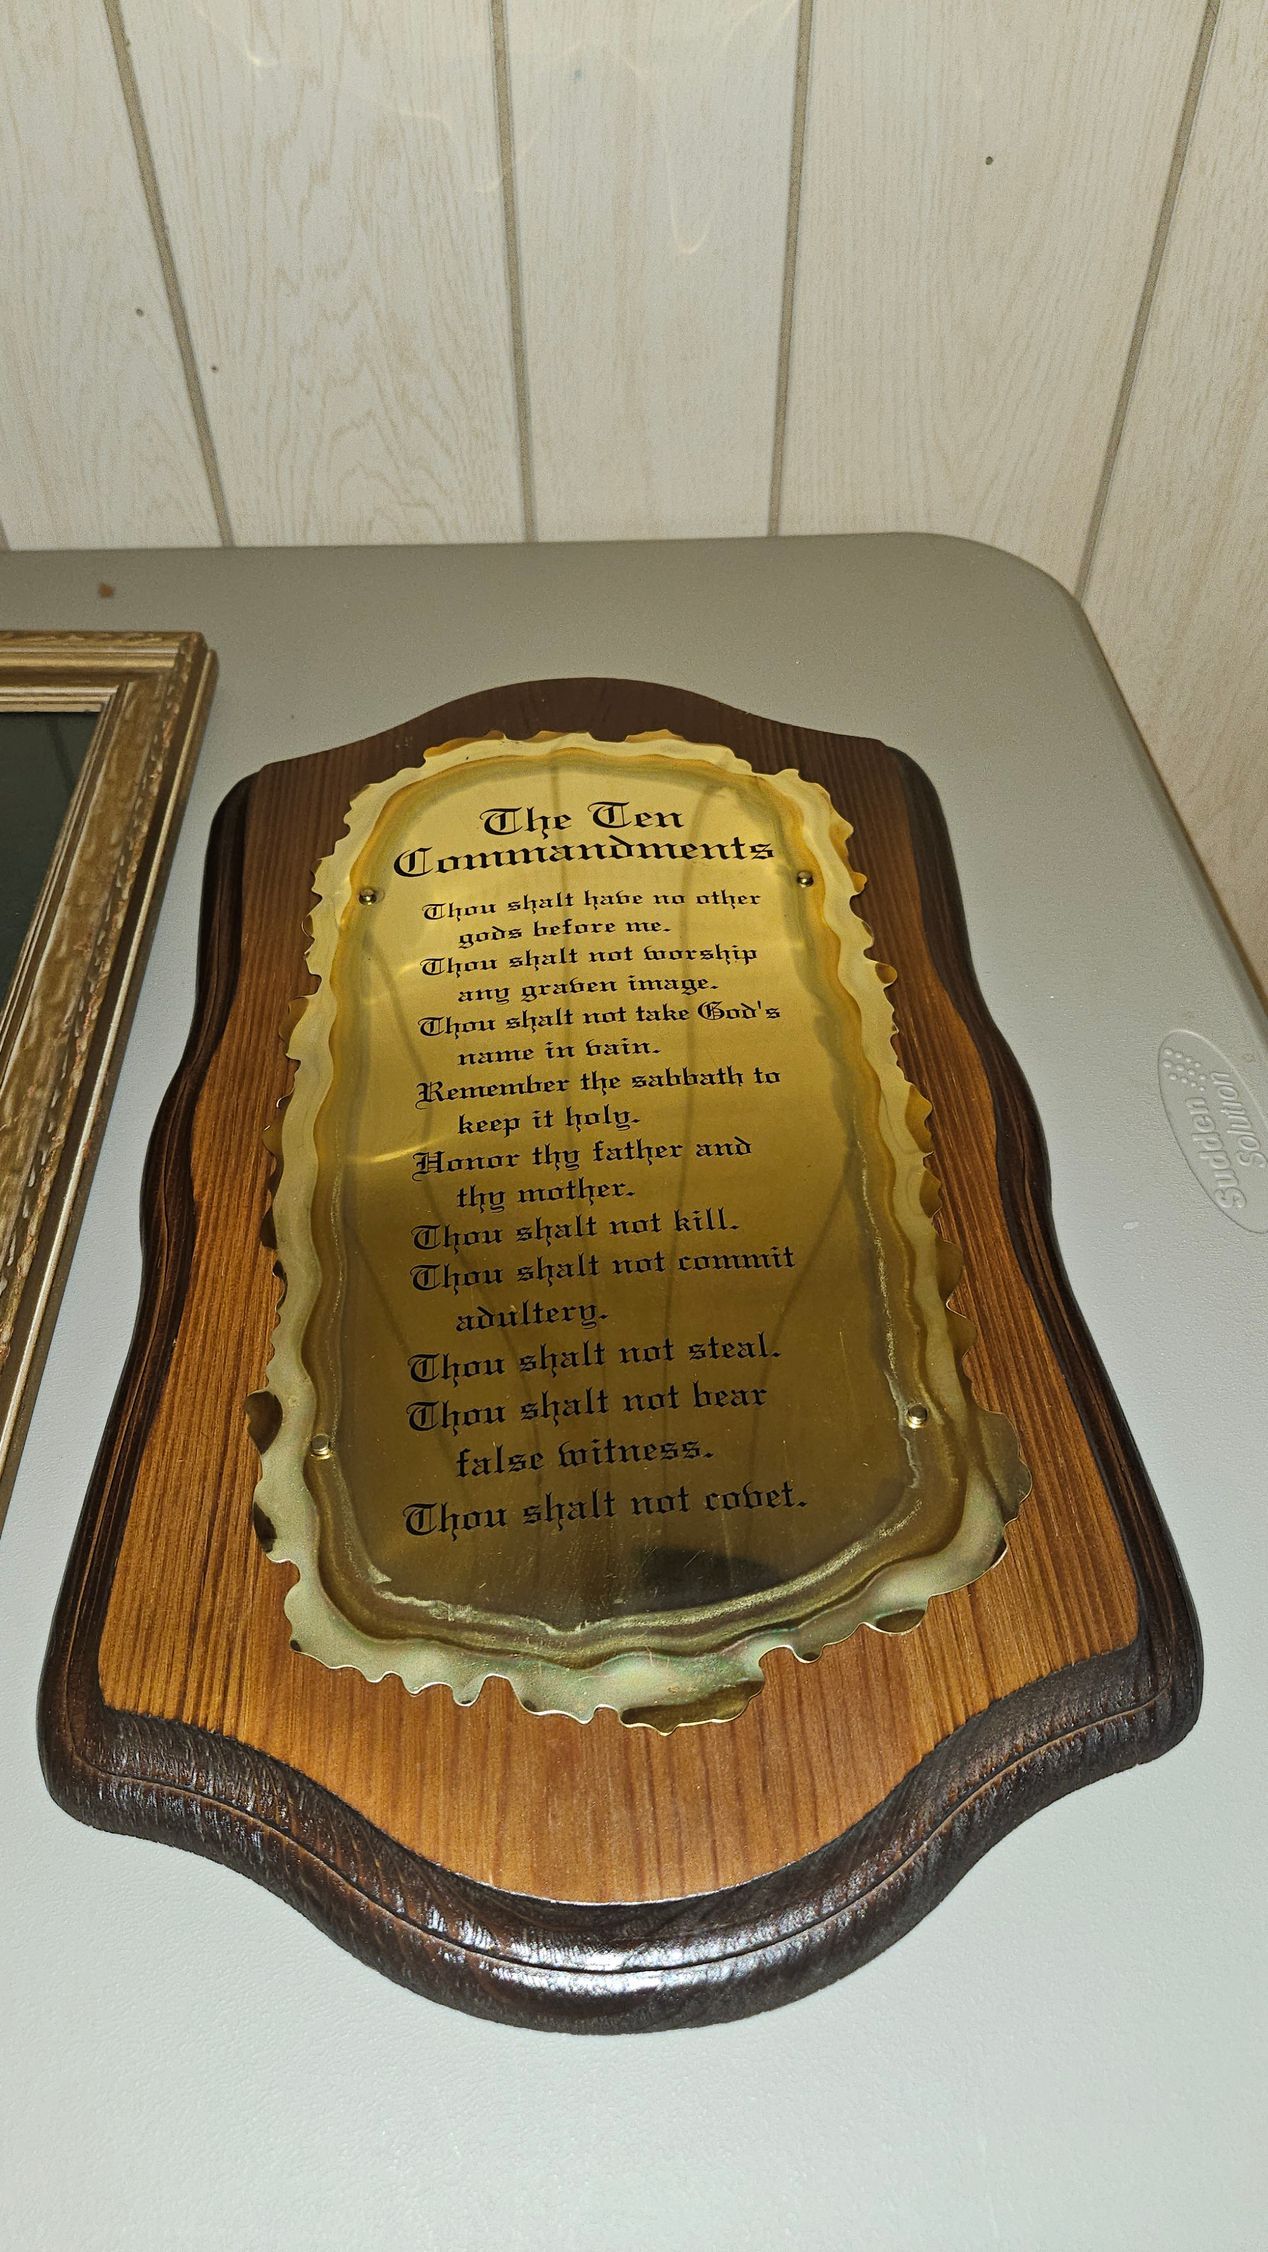 The Ten
Commandments
Thou shalt have no other
gods before me.
Thou shalt not worship
any graven image.
Thou shalt not take God's
name in vain.
Remember the sabbath to
keep it holy.
Honor thy father and
thy mother.
Thou shalt not kill.
Thou shalt not commit
adultery.
Thou shalt not steal.
Thou shalt not bear
false witness.
Thou shalt not covet.
Sudden
Solution